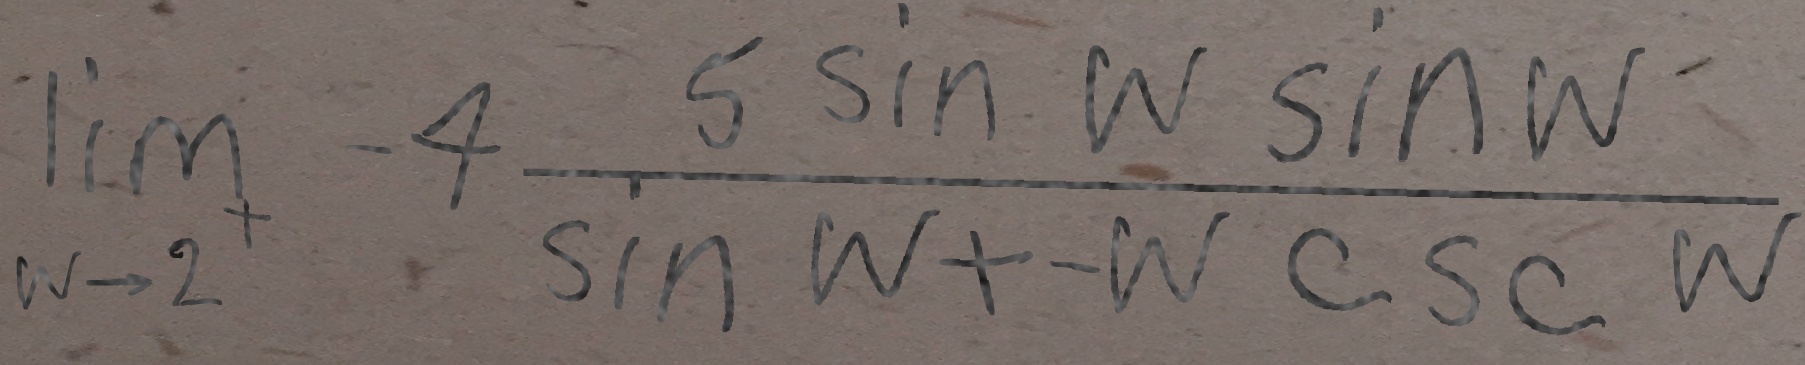 \lim_{w \to 2^+} -4 \frac{5 \sin w \sin w}{\sin w + -w \csc w}